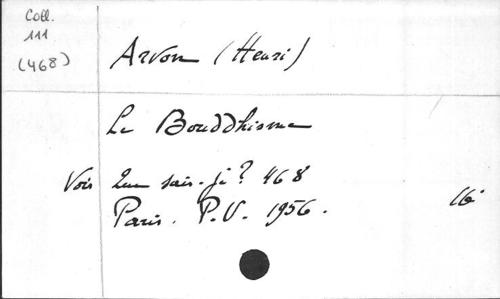 Coll.
111
(468)
Arvon (Henri)
Le Bouddhisme
Voir Que sais-je? 468
Paris. P.U. 1956. 16°